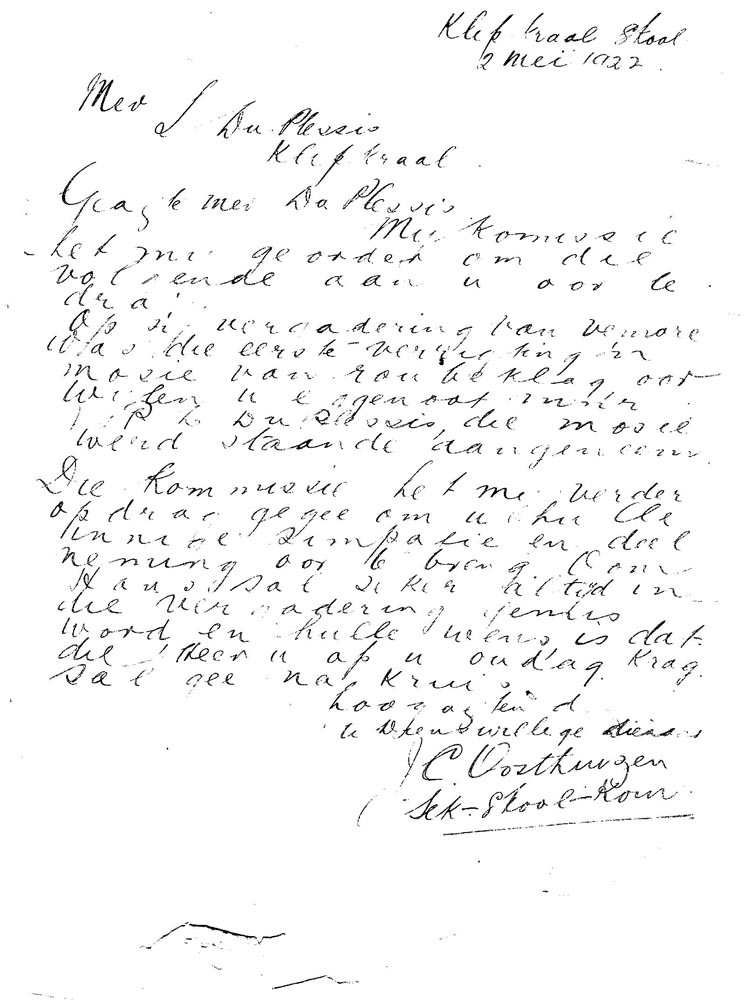 Klip kraal Skool
2 Mei 1922
Mev
S Du Plessis
Klip kraal
Geagte Mev Du Plessis
My Komissie
het my georder om die
volgende aan u oor te
dra
op si vergadering van vemore
was die eerste verrigting 'n
mosie van roubeklag oor
wylen u eggenoot
Du Plessis, die mosie
werd staande aangeneem
Die Kommissie het my verder
opdrag gegee om u hulle
innige simpatie en deel
neming oor te breng Oom
Hans sal seker altijd in
die vergadering gemis
word en hulle wens is dat
die Heer u op u oudag Krag
sal gee na Kruis
hoogagtend
u dienswillige dienaar
J C Oosthuizen
Sek-Skool-Kom